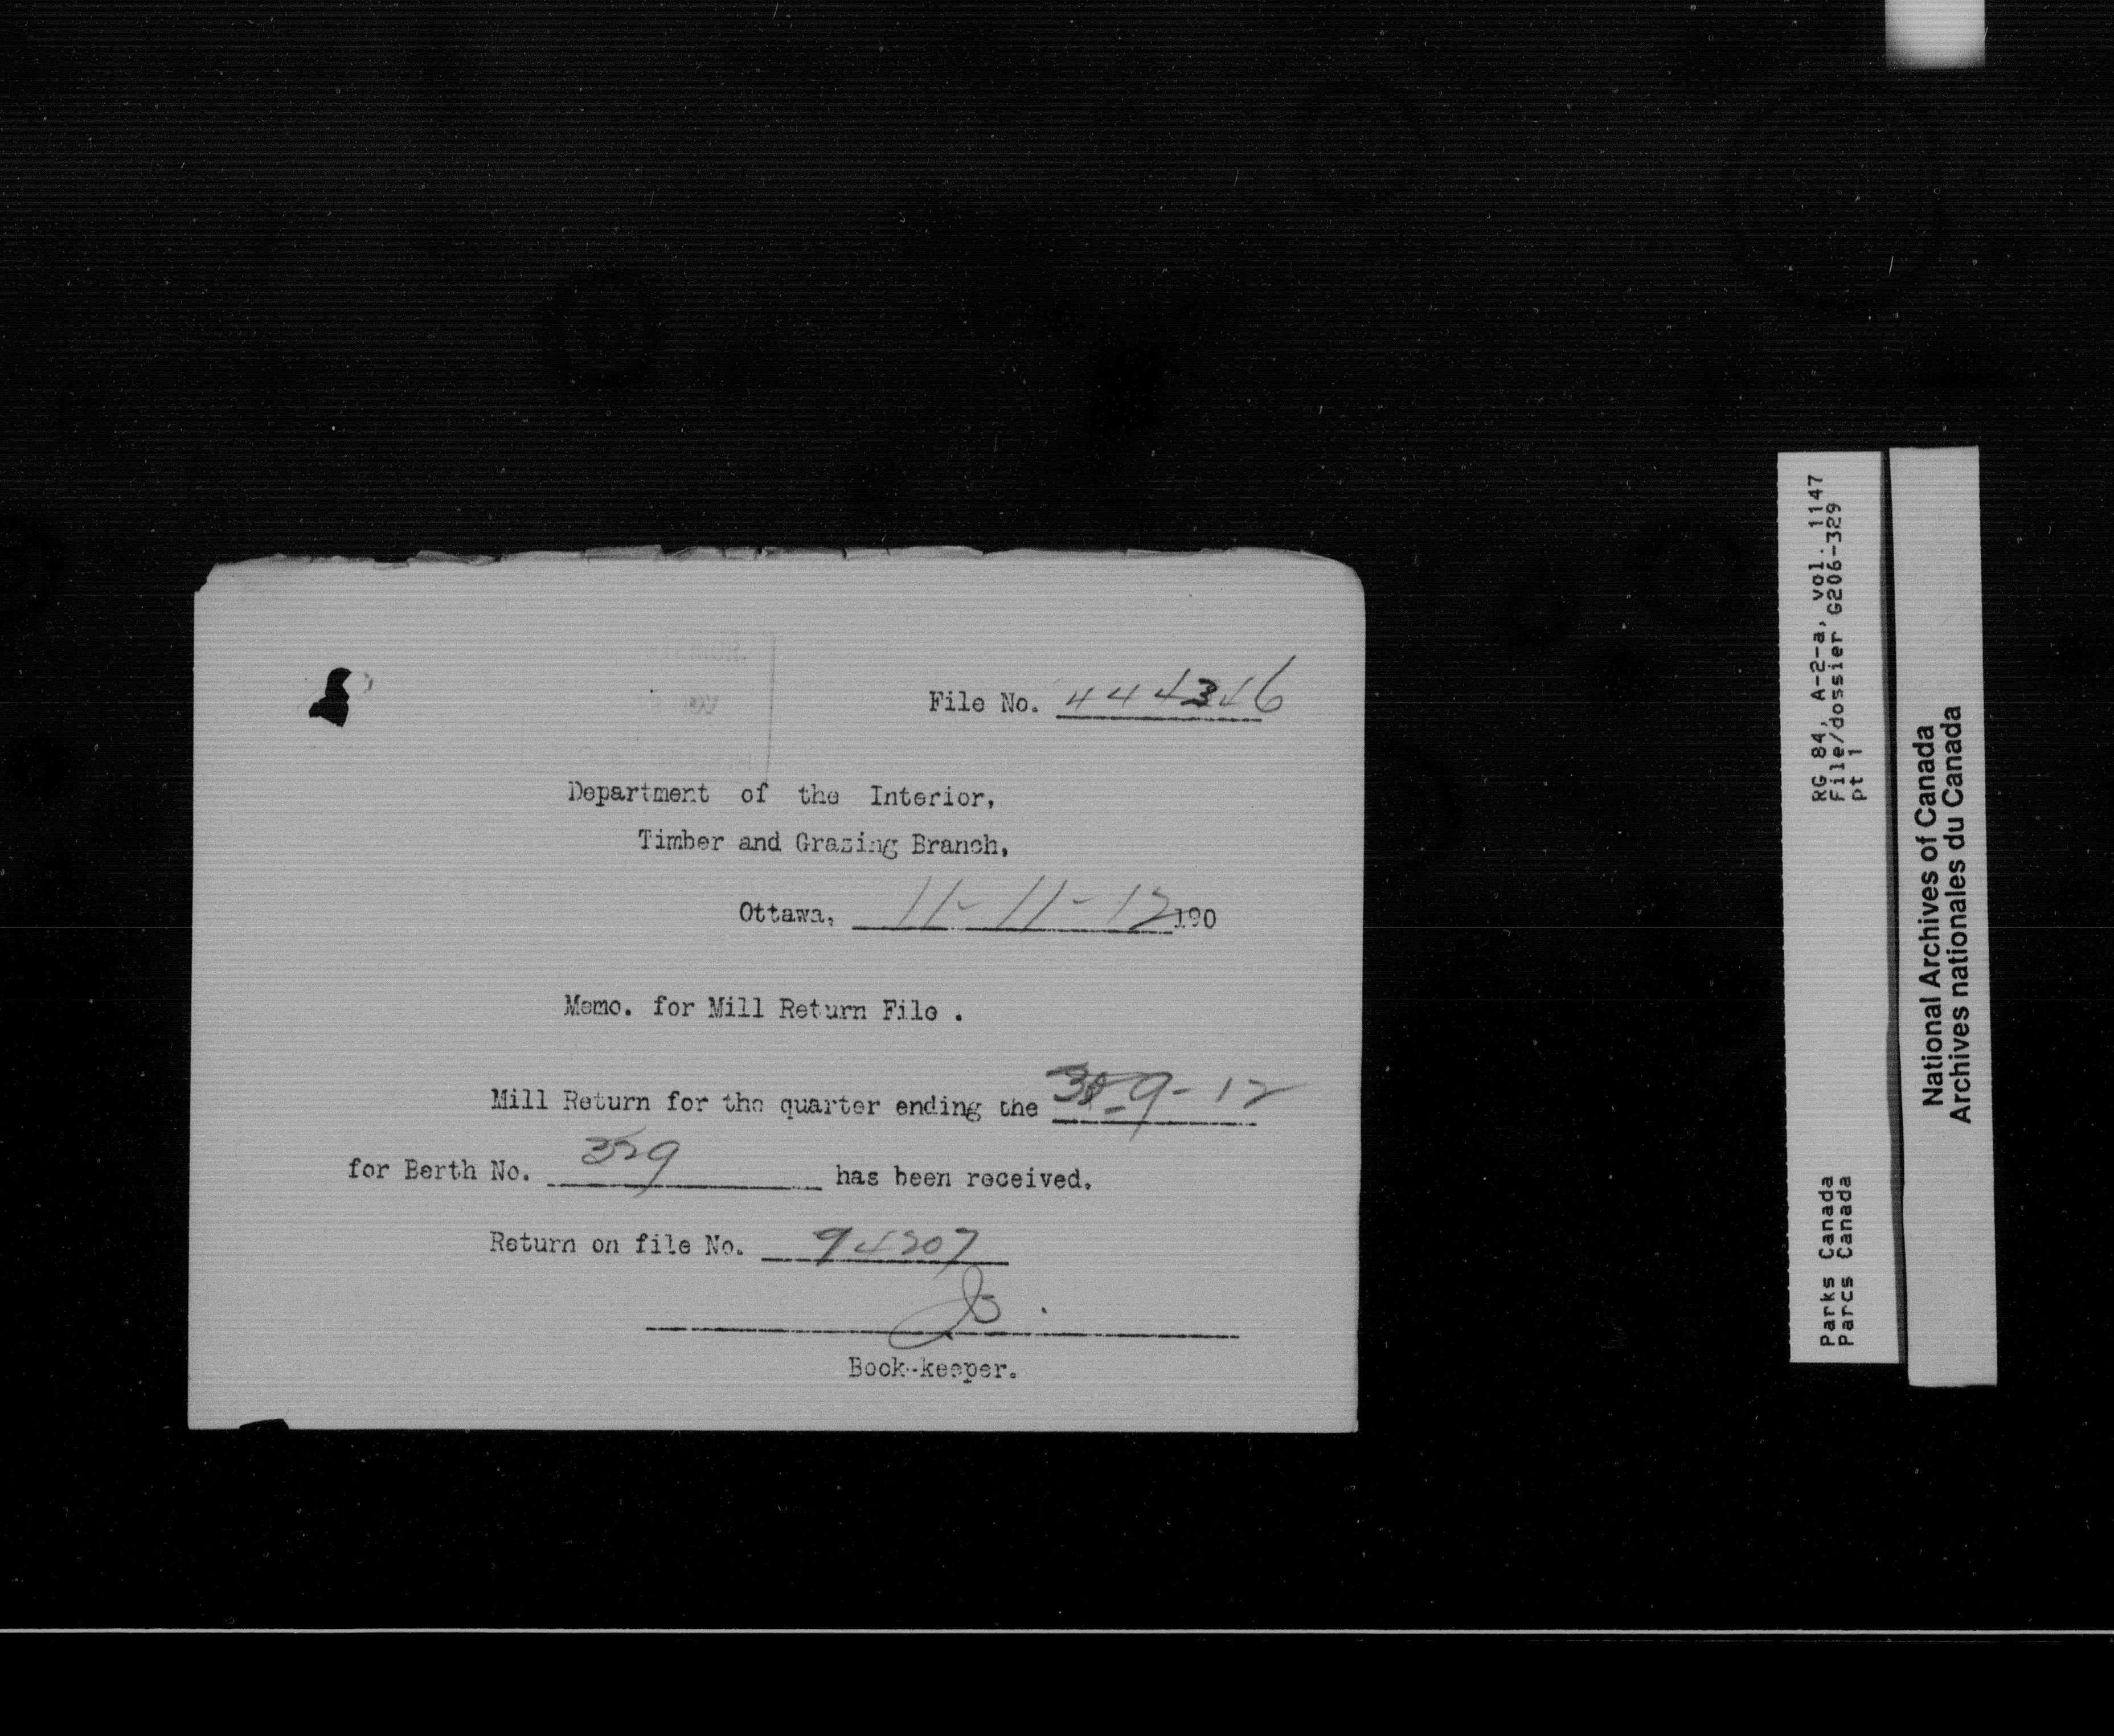 INTERIOR.
NOV
BRANCH
File No. 444346
Department of the Interior,
Timber and Grazing Branch,
Ottawa, 11-11-12 190
Memo. for Mill Return File .
Mill Return for the quarter ending the 30-9-12
for Berth No. 329 has been received.
Return on file No. 94207
Book-keeper.
RG 84, A-2-a, vol. 1147
File/dossier G206-329
pt 1
Parks Canada
Parcs Canada
National Archives of Canada
Archives nationales du Canada